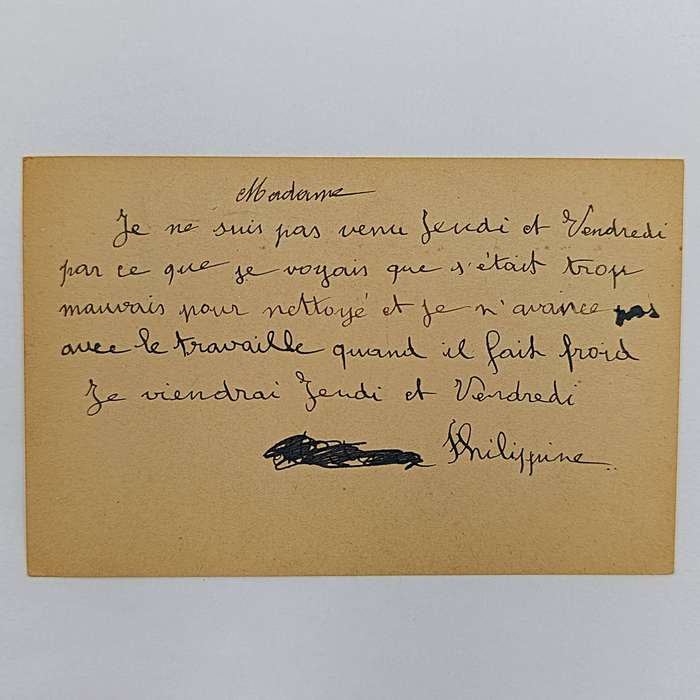 Madame
Je ne suis pas venu Jeudi et Vendredi
par ce que je voyais que s'était trop
mauvais pour nettoyé et je n'avance pas
avec le travaille quand il fait froid
Je viendrai Jeudi et Vendredi
Philippine